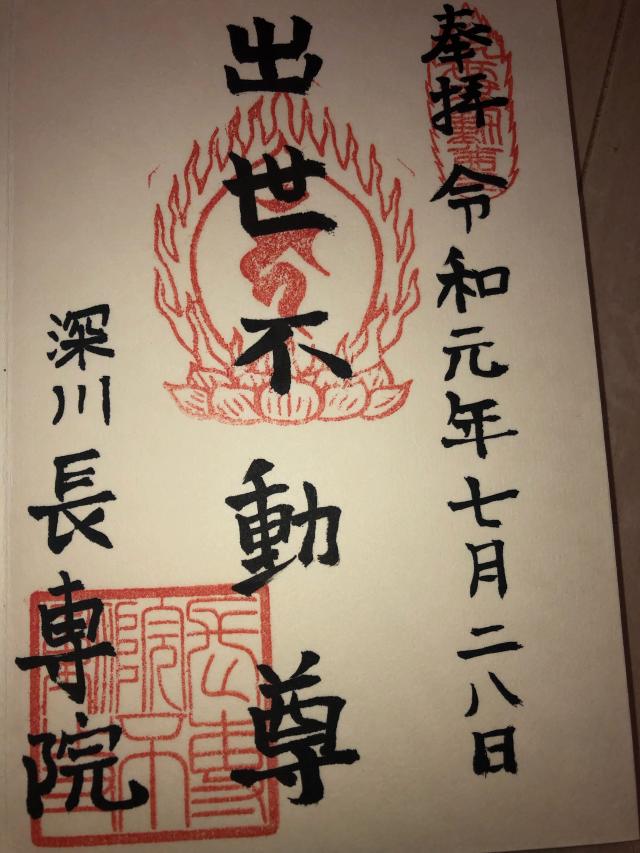 奉拝 令和元年七月二八日
出世不動尊
深川 長専院